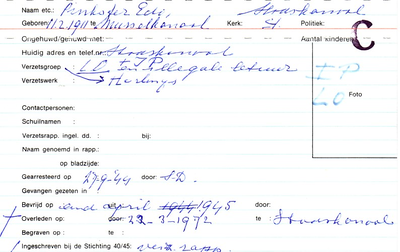 Naam etc.: Edu, Stadskanaal
Geboren: 11/2 1911 te Musselkanaal Kerk: Politiek:
Ongehuwd/gehuwd met: Aantal kinderen: C
Huidig adres en telef.nr. Stadskanaal
Verzetsgroep : LO en illegale lectuur
Verzetswerk :
IP
LO
Foto
Contactpersonen:
Schuilnaam :
Verzetsrapp. ingel. dd. : bij:
Naam genoemd in rapp.:
op bladzijde:
Gearresteerd op 27-9-44 door: S.D.
Gevangen gezeten in
Bevrijd op eind april 1945 door:
Overleden op: door: 22-3-1972 te : Stadskanaal
Begraven op : te :
Ingeschreven bij de Stichting 40/45: rapp.